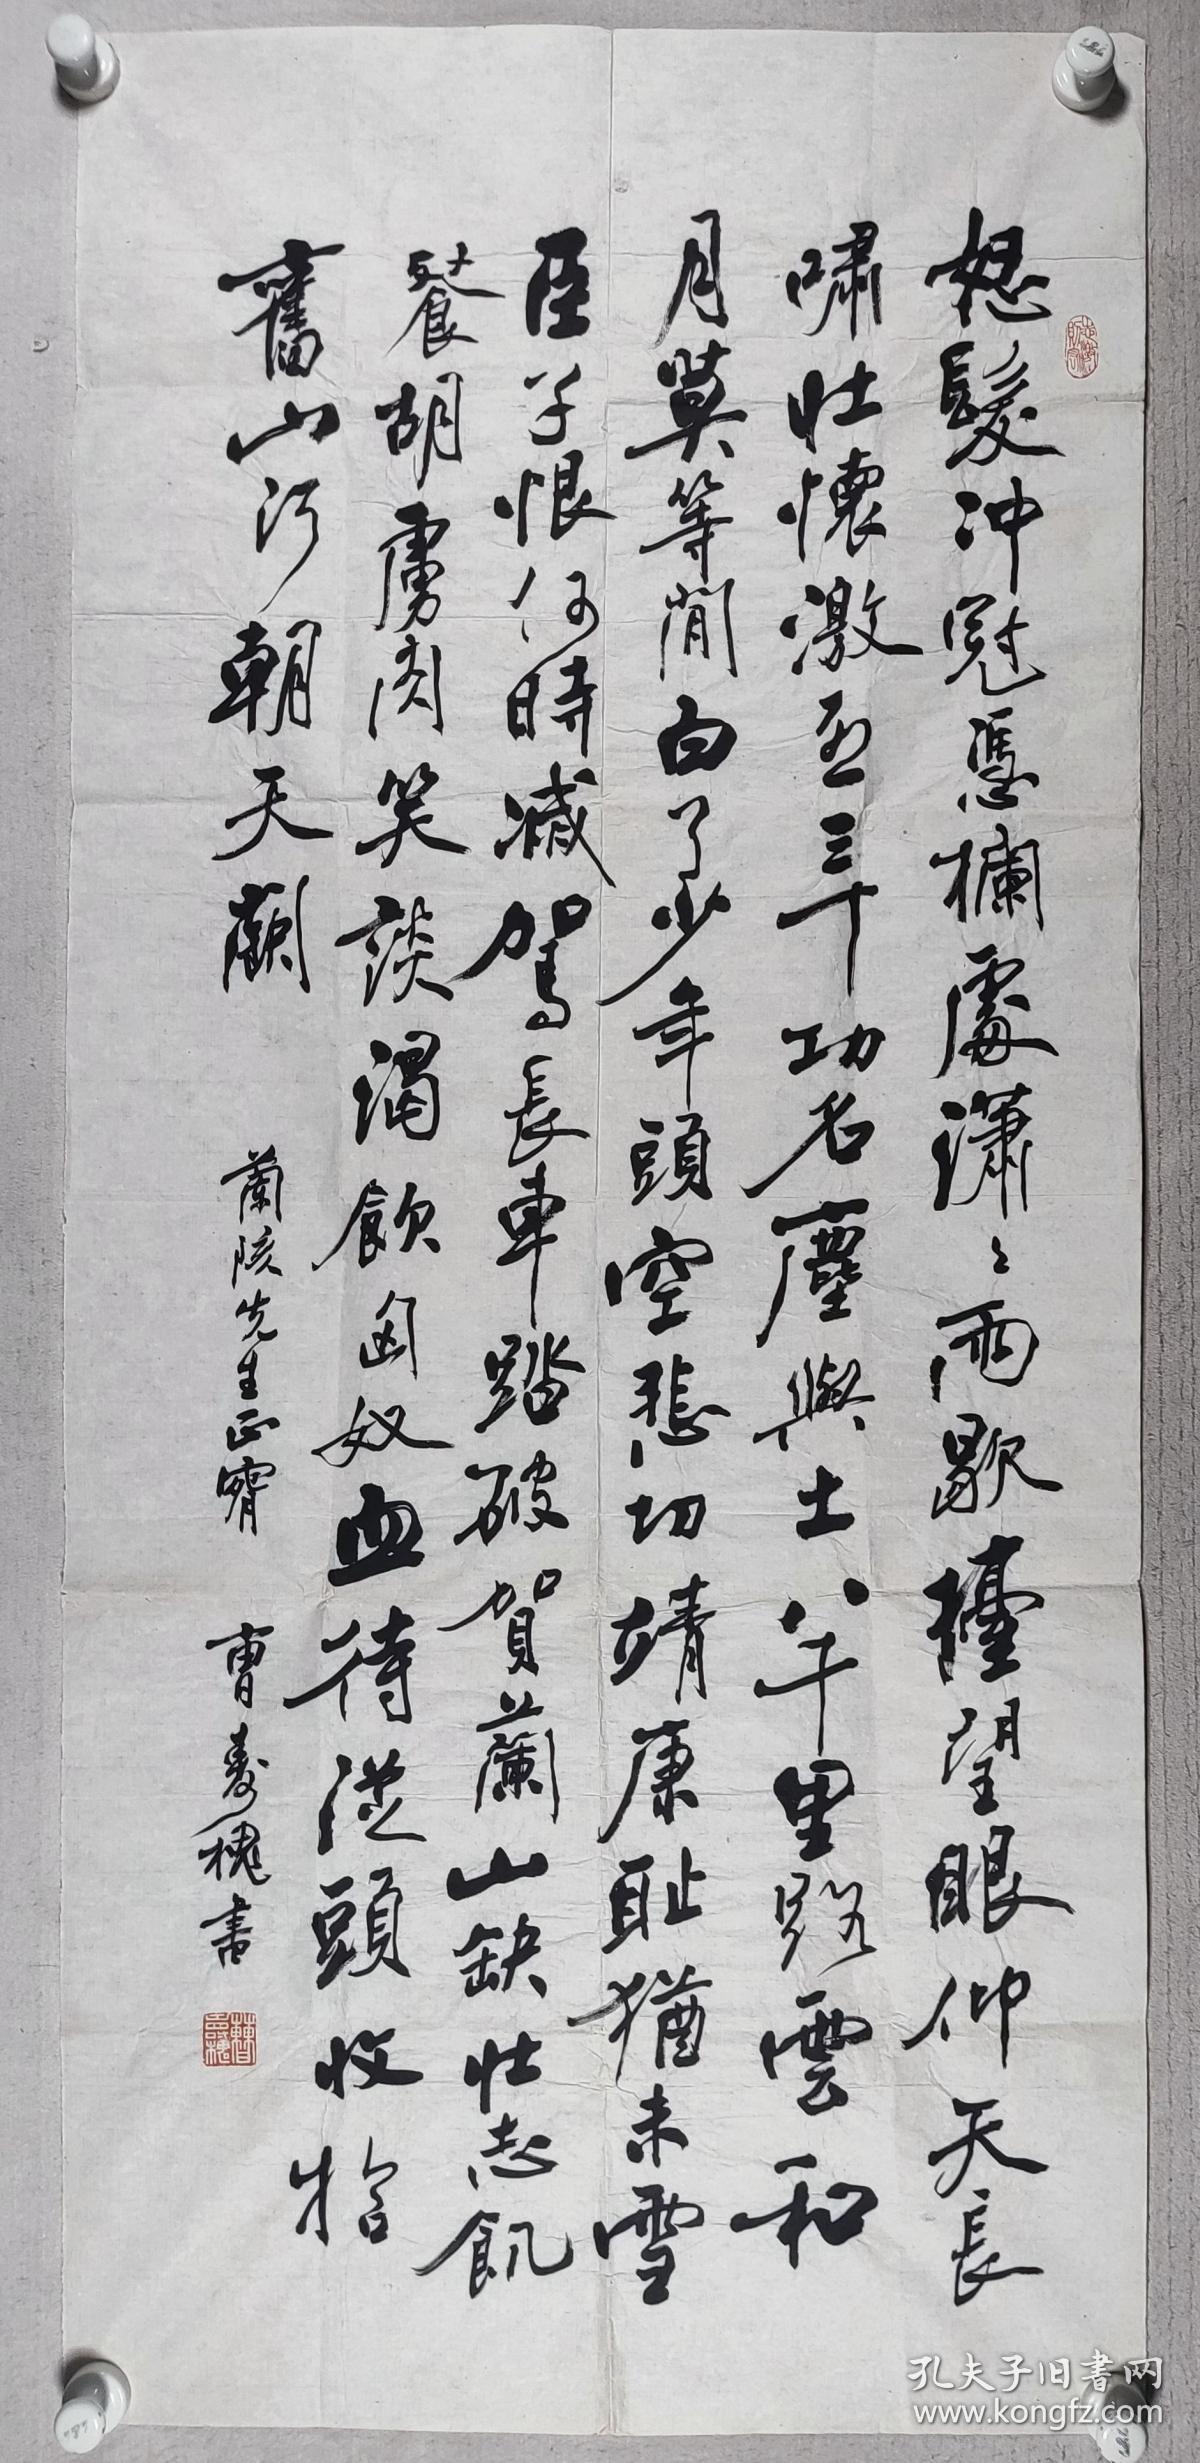 怒髮冲冠憑欄處瀟〻雨歇擡望眼仰天長
嘯壯懷激烈三十功名塵與土八千里路雲和
月莫等閒白了少年頭空悲切靖康耻猶未雪
臣子恨何時滅駕長車踏破賀蘭山缺壯志飢
餐胡虜肉笑談渴飲匈奴血待從頭收拾
舊山河朝天闕
蘭陔先生正腕
曹壽槐書
孔夫子旧书网
www.kongfz.com